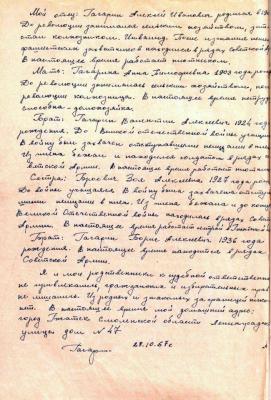 Мой отец: Гагарин Алексей Иванович родился в 19
До революции занимался сельским хозяйством, затем
стал колхозником. Инвалид. После изгнания неме
фашистских захватчиков находился в рядах Советской
В настоящее время работает плотником.
Мать: Гагарина Анна Тимофеевна 1903 года рож
До революции занималась сельским хозяйством, посл
революции колхозница. В настоящее время
домохозяйка.
Брат: Гагарин Валентин Алексеевич 1924 год
рождения. До Великой отечественной войны учащи
В войну был захвачен отступавшими немцами в плен.
Из плена бежал и находился солдатом в рядах
Советской Армии. В настоящее время работает
Сестра: Алексеевна, 1926 года рожд.
До войны учащаяся. В войну была захвачена отсту
немцами в плен. Из плена бежала и до конц
Великой Отечественной войны находилась в рядах Совет
Армии. В настоящее время работает
Брат: Гагарин Борис Алексеевич 1936 года
рождения. В настоящее время находится в рядах
Советской Армии.
Я и мои родственники к судебной ответственно
не привлекались, гражданских и избирательных прав
не лишались. Из родных и знакомых за границей никого
нет. В настоящее время мой домашний адрес:
город Гжатск Смоленской области Ленинградс
улица дом №47
Гагарин